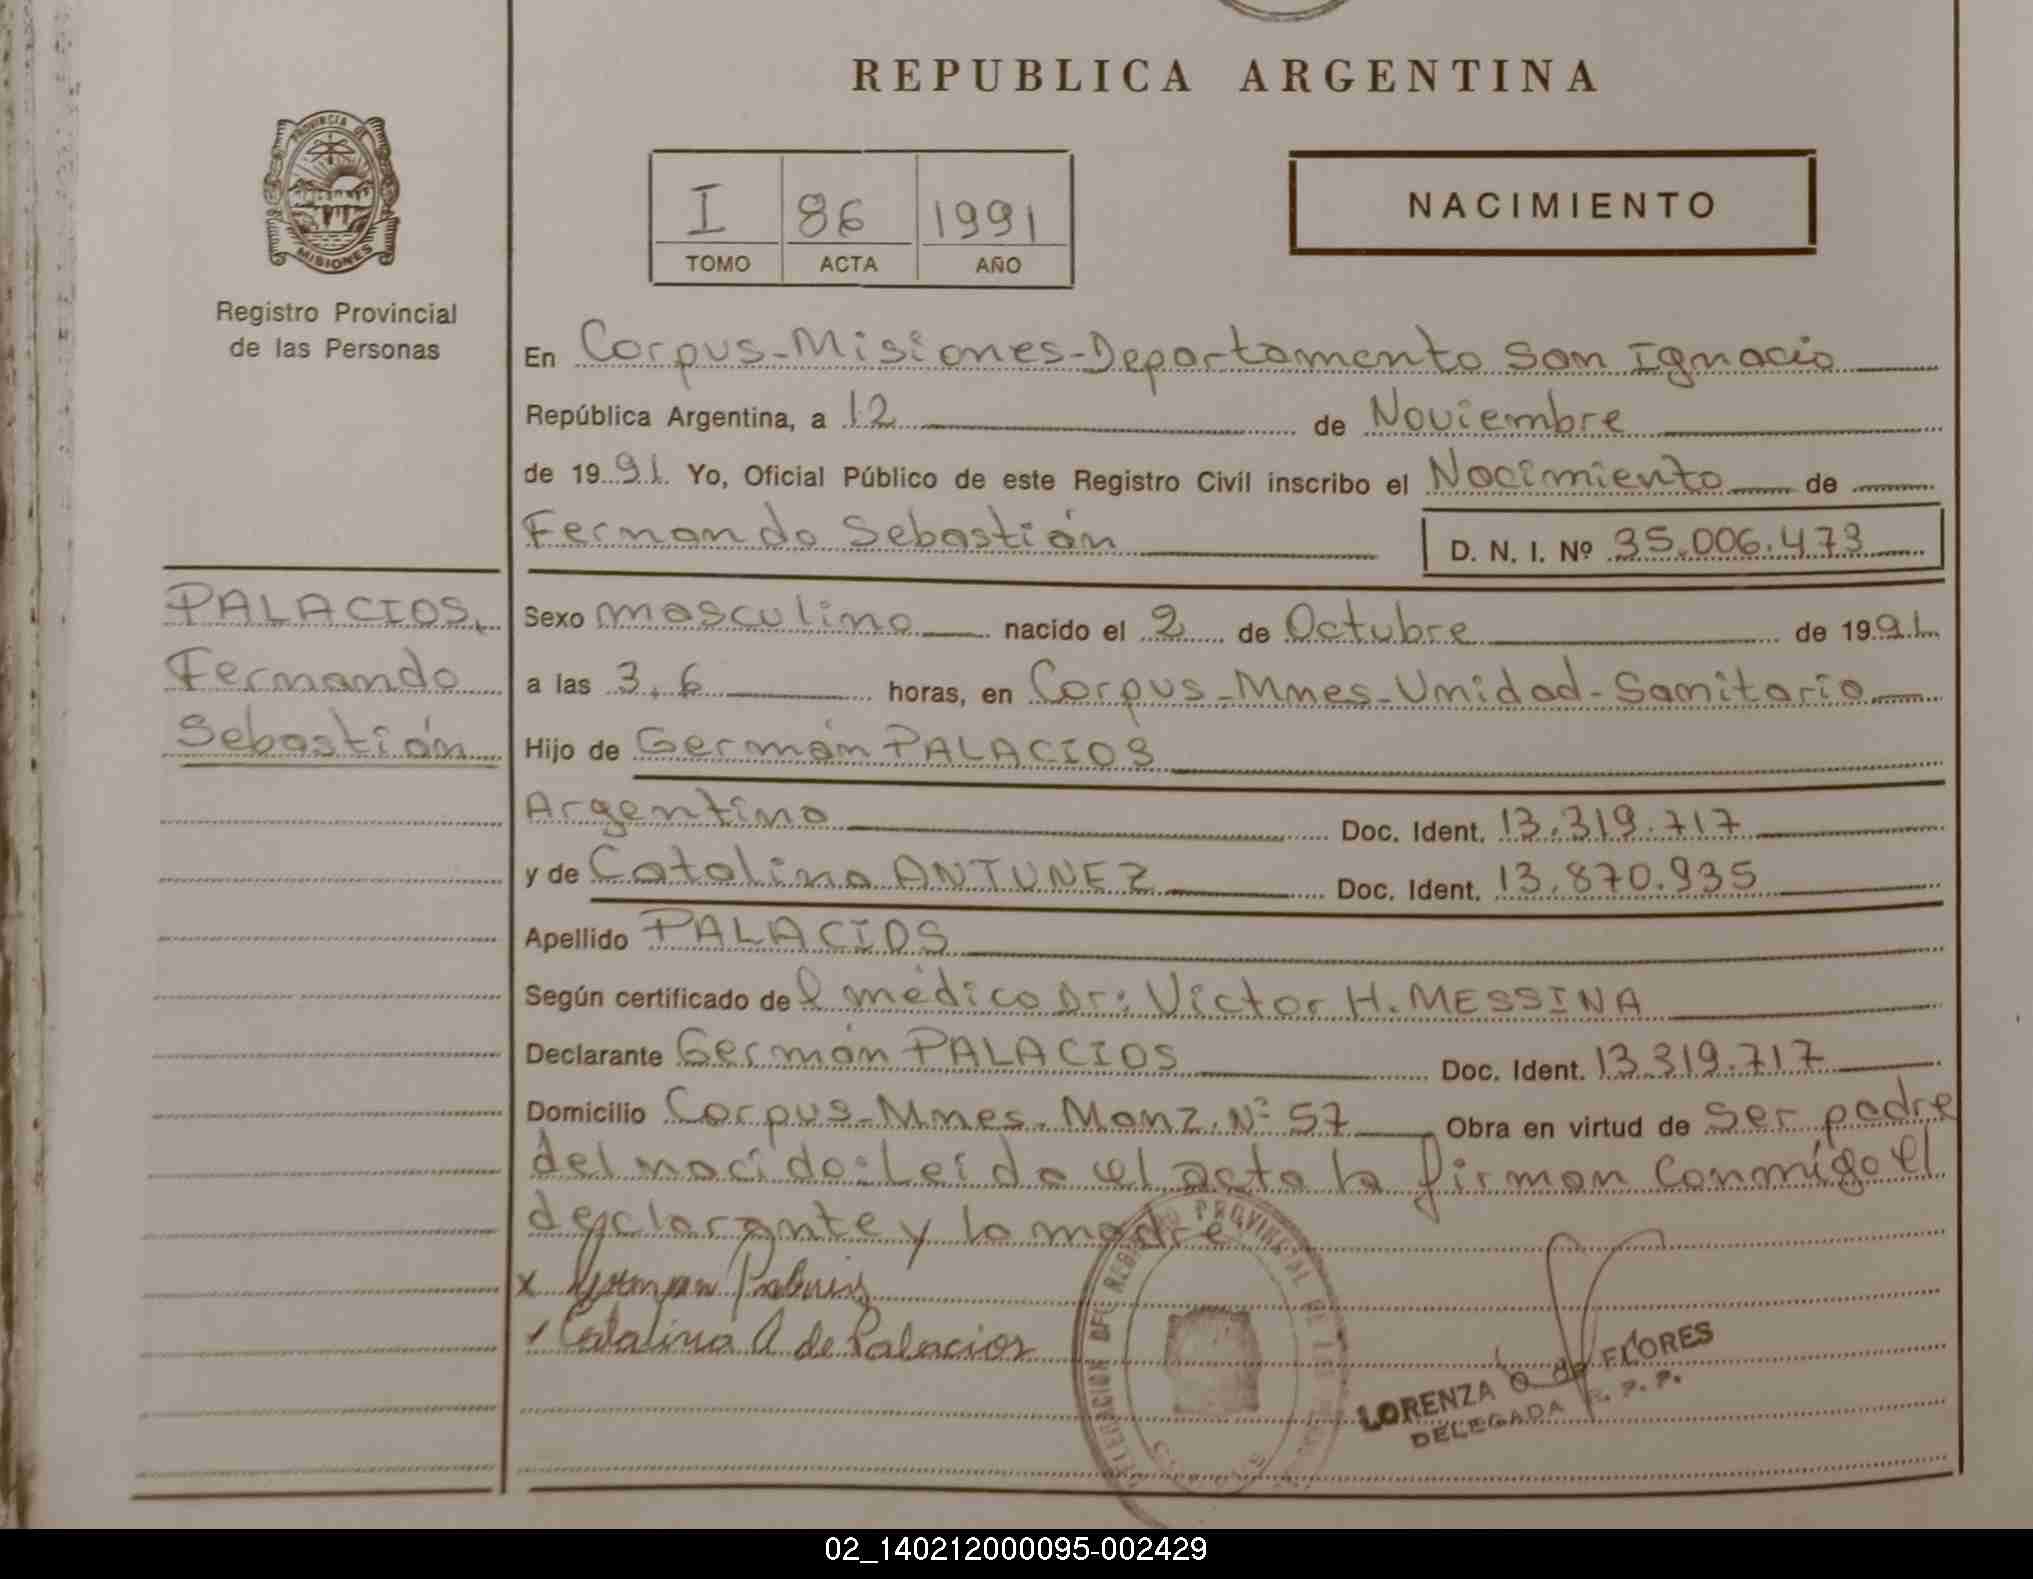 REPUBLICA ARGENTINA
PROVINCIA DE
MISIONES
Registro Provincial
de las Personas
I 86 1991
TOMO ACTA AÑO
NACIMIENTO
En Corpus-Misiones-Departamento San Ignacio
República Argentina, a 12 de Noviembre
de 1991. Yo, Oficial Público de este Registro Civil inscribo el Nacimiento de
Fernando Sebastián D. N. I. Nº 35.006.473
PALACIOS,
Fernando
Sebastián
Sexo masculino nacido el 2 de Octubre de 1991
a las 3,6 horas, en Corpus-Mnes-Unidad-Sanitaria
Hijo de Germán PALACIOS
Argentino Doc. Ident. 13.319.717
y de Catalina ANTUNEZ Doc. Ident. 13.870.935
Apellido PALACIOS
Según certificado del médico Dr: Victor H. MESSINA
Declarante Germán PALACIOS Doc. Ident. 13.319.717
Domicilio Corpus-Mnes. Manz. Nº 57 Obra en virtud de ser padre
del nacido: Leída el acta la firman conmígo el
declarante y la madre
x German Palacios
x Catalina A de Palacios
REGISTRO PROVINCIAL DE LAS
LORENZA O de FLORES
DELEGADA R. P. P.
02_140212000095-002429